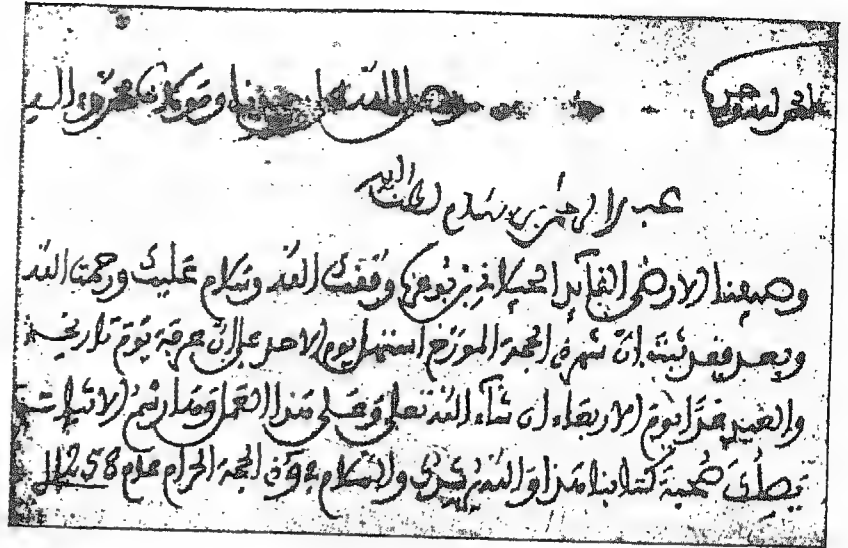 الحمد لله وحده وصلى الله على سيدنا ومولانا محمد وآله
عبد الرحمن بن هشام لطف الله به
وصيفنا الارضى القائد الجيلاني بن بوعزة وفقك الله وسلام عليك ورحمت الله
وبعد فقد ثبت ان شهر ذي الحجة المؤرخ استهل يوم الاحد على ان عرفة يوم تاريخه
والعيد غدا يوم الاربعاء ان شاء الله تعلى وعلى هذا العمل
يصلك صحبة كتابنا هذا والله يرشدك والسلام في ذي الحجة الحرام عام 1258